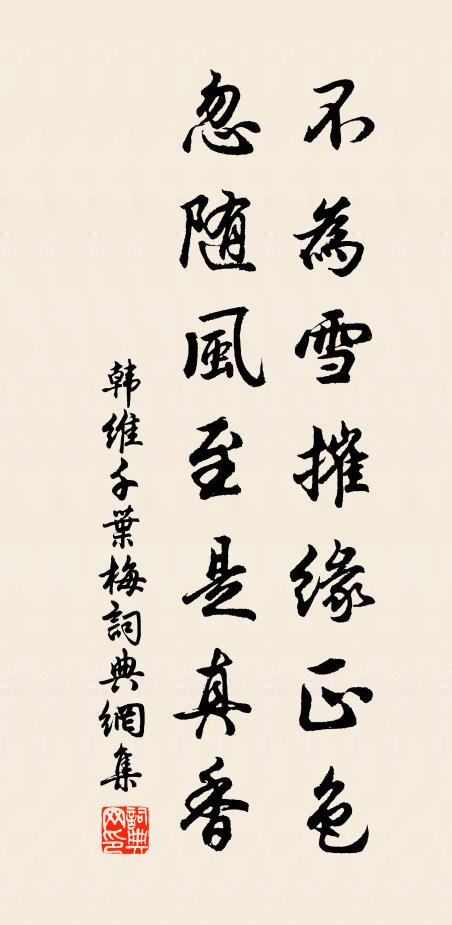 不為雪摧緣正色
忽随風至是真香
韩維千葉梅詞典網集
詞典网印